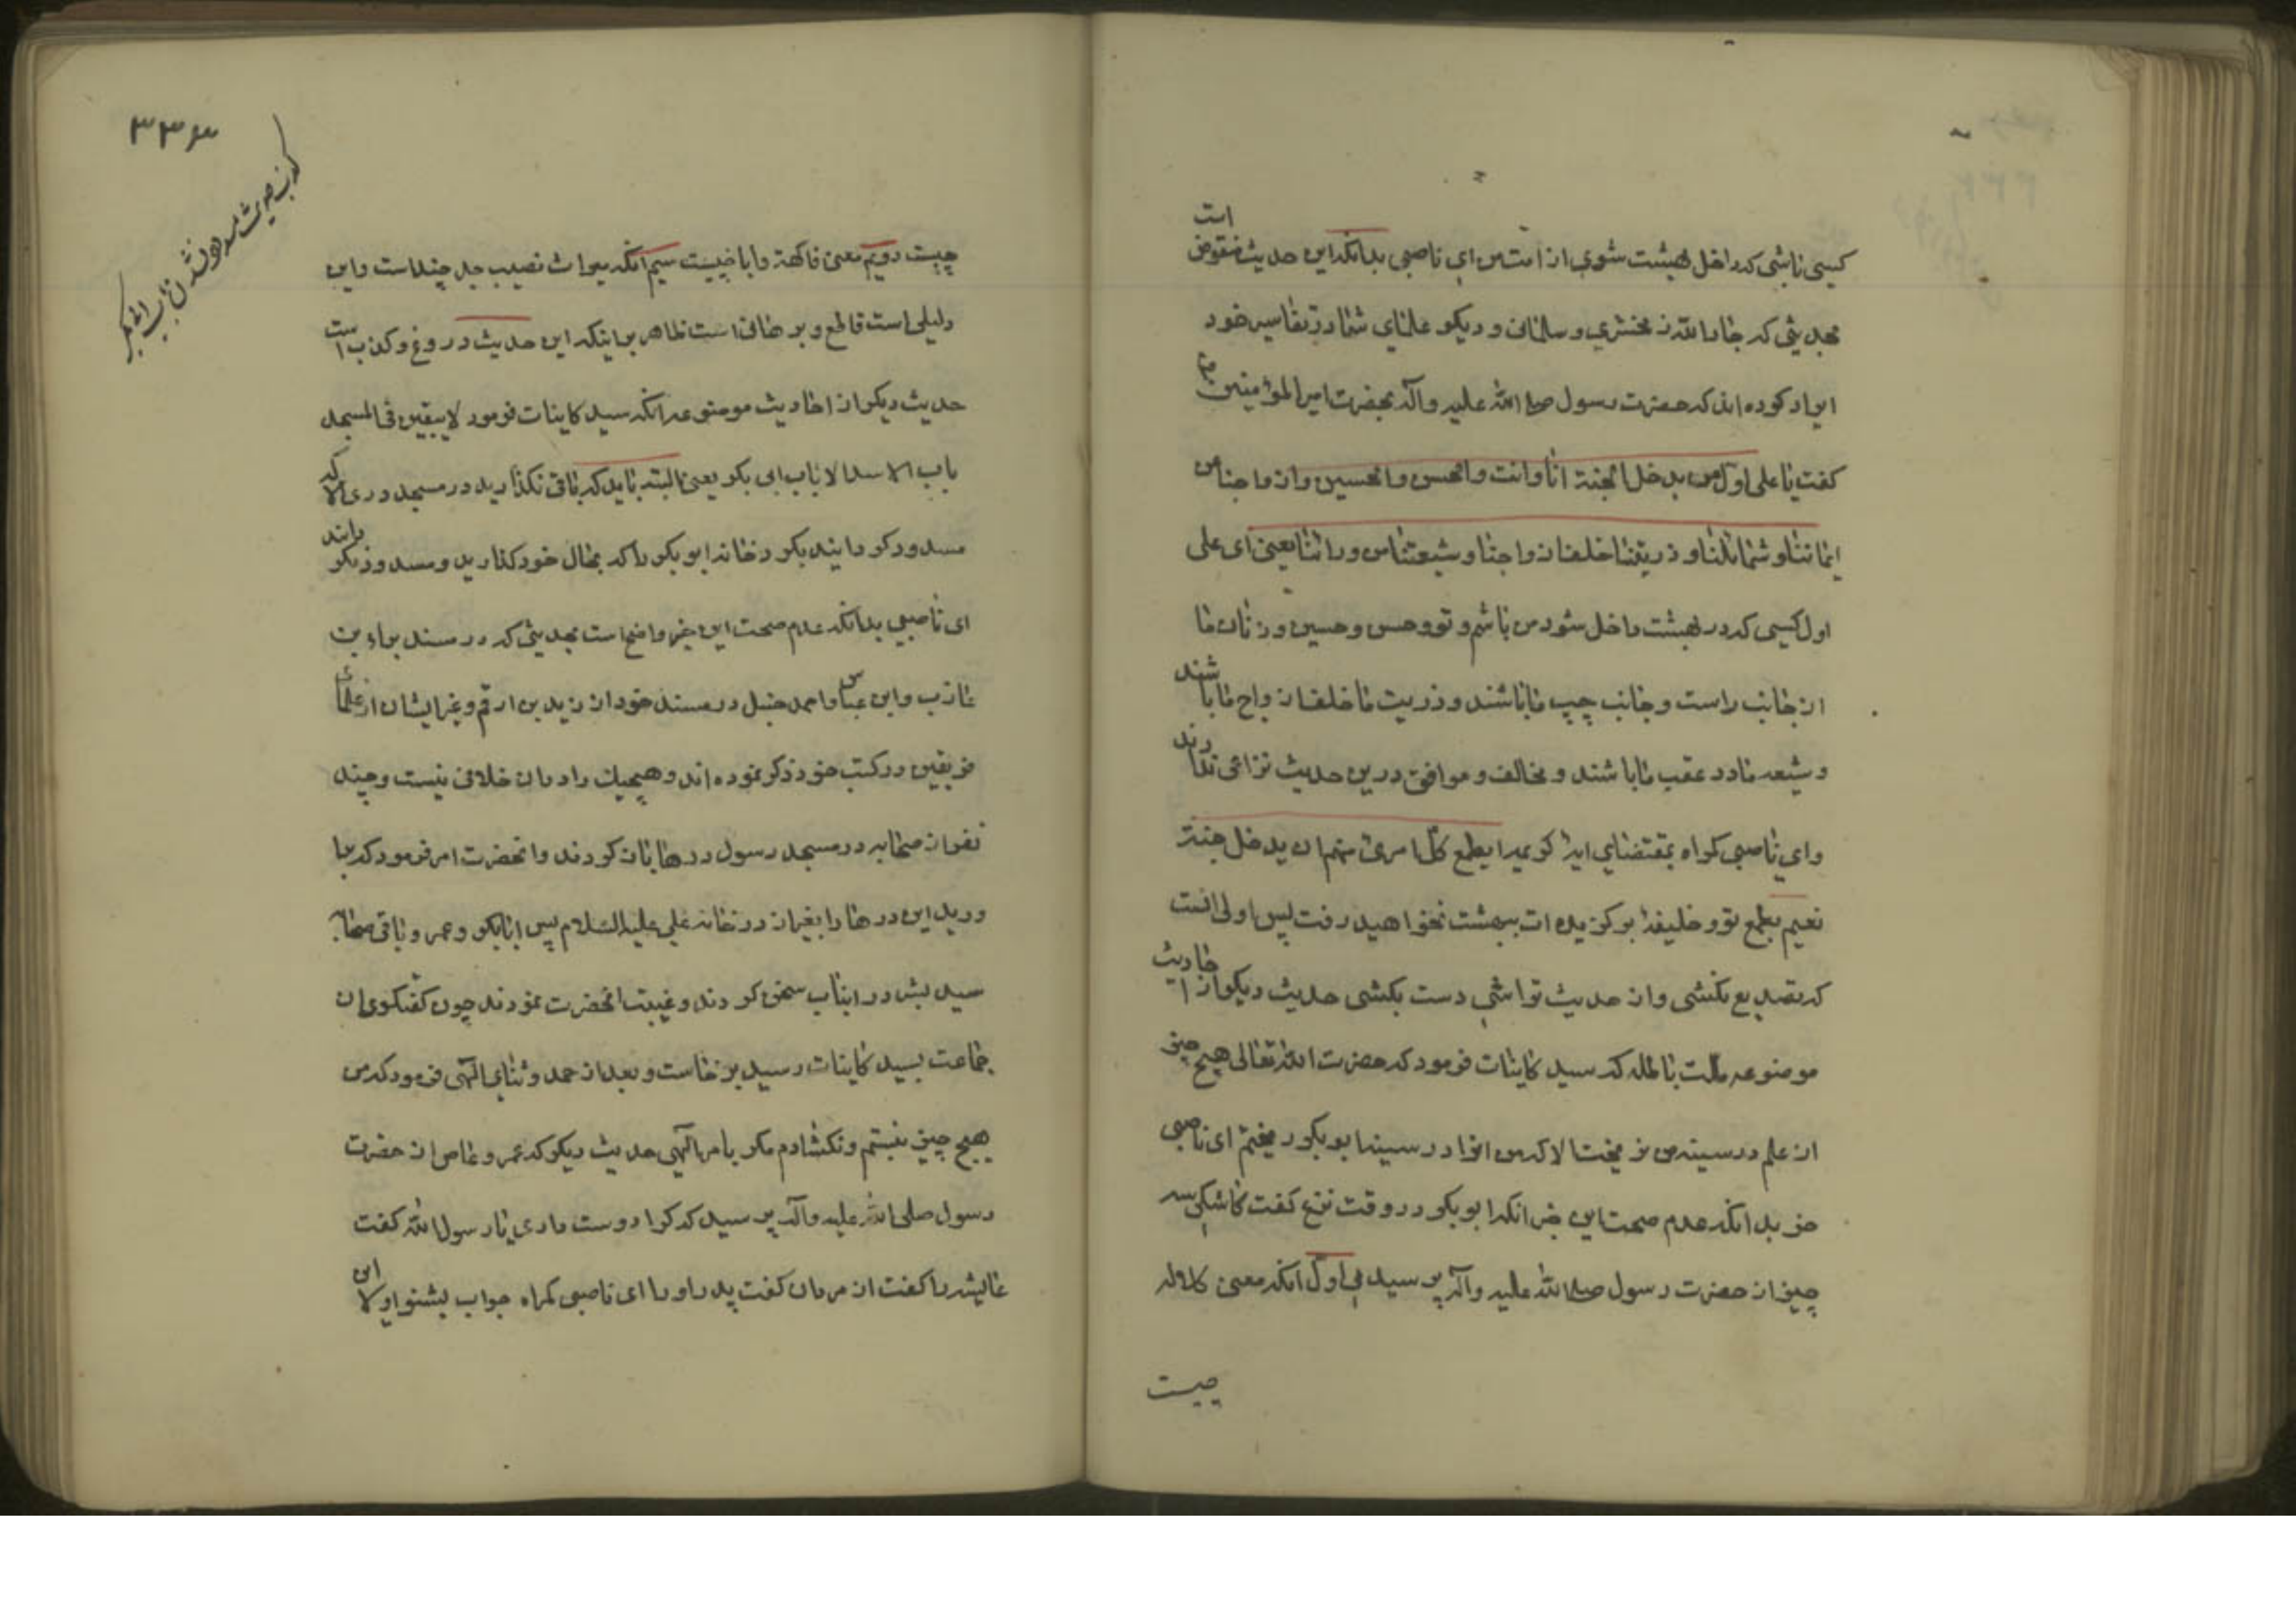 کسی باشی که داخل بهشت شوی از امت من ای ناصبی بدانکه این حدیث منقوض است
بحدیثی که جارالله زمخشری و سلمانی و دیکر علمای شما در تفاسیر خود
ایراد کرده اند که حضرت رسول صلی الله علیه وآله بحضرت امیرالمؤمنین ع
کفت یا علی اول من یدخل الجنة انا وانت والحسن والحسین وازواجنا عن
ایماننا وشمائلنا و ذریتنا خلف ازواجنا وشیعتنا من ورائنا یعنی ای علی
اول کسی که در بهشت داخل شود من باشم و تو و حسن و حسین و زنان ما
از جانب راست و جانب چپ ما باشند و ذریت ما خلف ازواج ما باشند
و شیعه ما در عقب ما باشند و مخالف و موافق درین حدیث نزاعی ندارند
وای ناصبی کمراه بمقتضای ایه کریمه ایطمع کل امرئ منهم ان یدخل جنة
نعیم بطمع تو و خلیفه برکزیده ات ببهشت نخواهید رفت پس اولی انست
که تصدیع نکشی و از حدیث تراشی دست بکشی حدیث دیکر از احادیث
موضوعه باطله که سید کاینات فرمود که حضرت الله تعالی هیچ چیز
از علم در سینه من نریخت الا که من انرا در سینه ابوبکر ریختم ای ناصبی
خر بدانکه عدم صحت این خبر انکه ابوبکر در وقت نزع کفت کاشکی سه
چیز از حضرت رسول صلی الله علیه وآله پرسیدمی اول انکه معنی کلاله
چیست
۳۳۶
چیست دویم معنی فاکهة وابا چیست سیم انکه میراث نصیب جد چنداست واین
دلیلی است قاطع و برهانی است ظاهر بر اینکه این حدیث دروغ و کذب است
حدیث دیکر از احادیث موضوعه انکه سید کاینات فرمود لایبقین فی المسجد
باب الا سد الا باب ابی بکر یعنی البته باید که باقی نکذارید در مسجد دری الا که
مسدود کردانید بکر درخانه ابوبکر را که بحال خود کذارید و مسدود نکردانند
ای ناصبی بدانکه عدم صحت این خبر واضح است بحدیثی که در مسند براء بن
عازب وابن عباس واحمد حنبل در مسند خود از زید بن ارقم و غیر ایشان از علمای
فریقین در کتب خود ذکر نموده اند و هیچیک را در ان خلافی نیست و چند
نفر از صحابه در مسجد رسول درها باز کردند وانحضرت امر فرمود که
این درها را بغیر از درخانه علی علیه السلام پس ابابکر و عمر و باقی صحابه
در اینباب سخن کردند و غیبت انحضرت نمودند چون کفتکوی ان
جماعت بسید کاینات رسید برخاست و بعد از حمد و ثنای الهی فرمود که من
هیچ چیز نبستم و نکشادم مکر بامر الهی حدیث دیکر که عمرو عاص از حضرت
رسول صلی الله علیه وآله پرسید که کرا دوست داری یا رسول الله کفت
عایشه را کفت از مردان کفت پدر او را ای ناصبی کمراه جواب بشنو اولا این